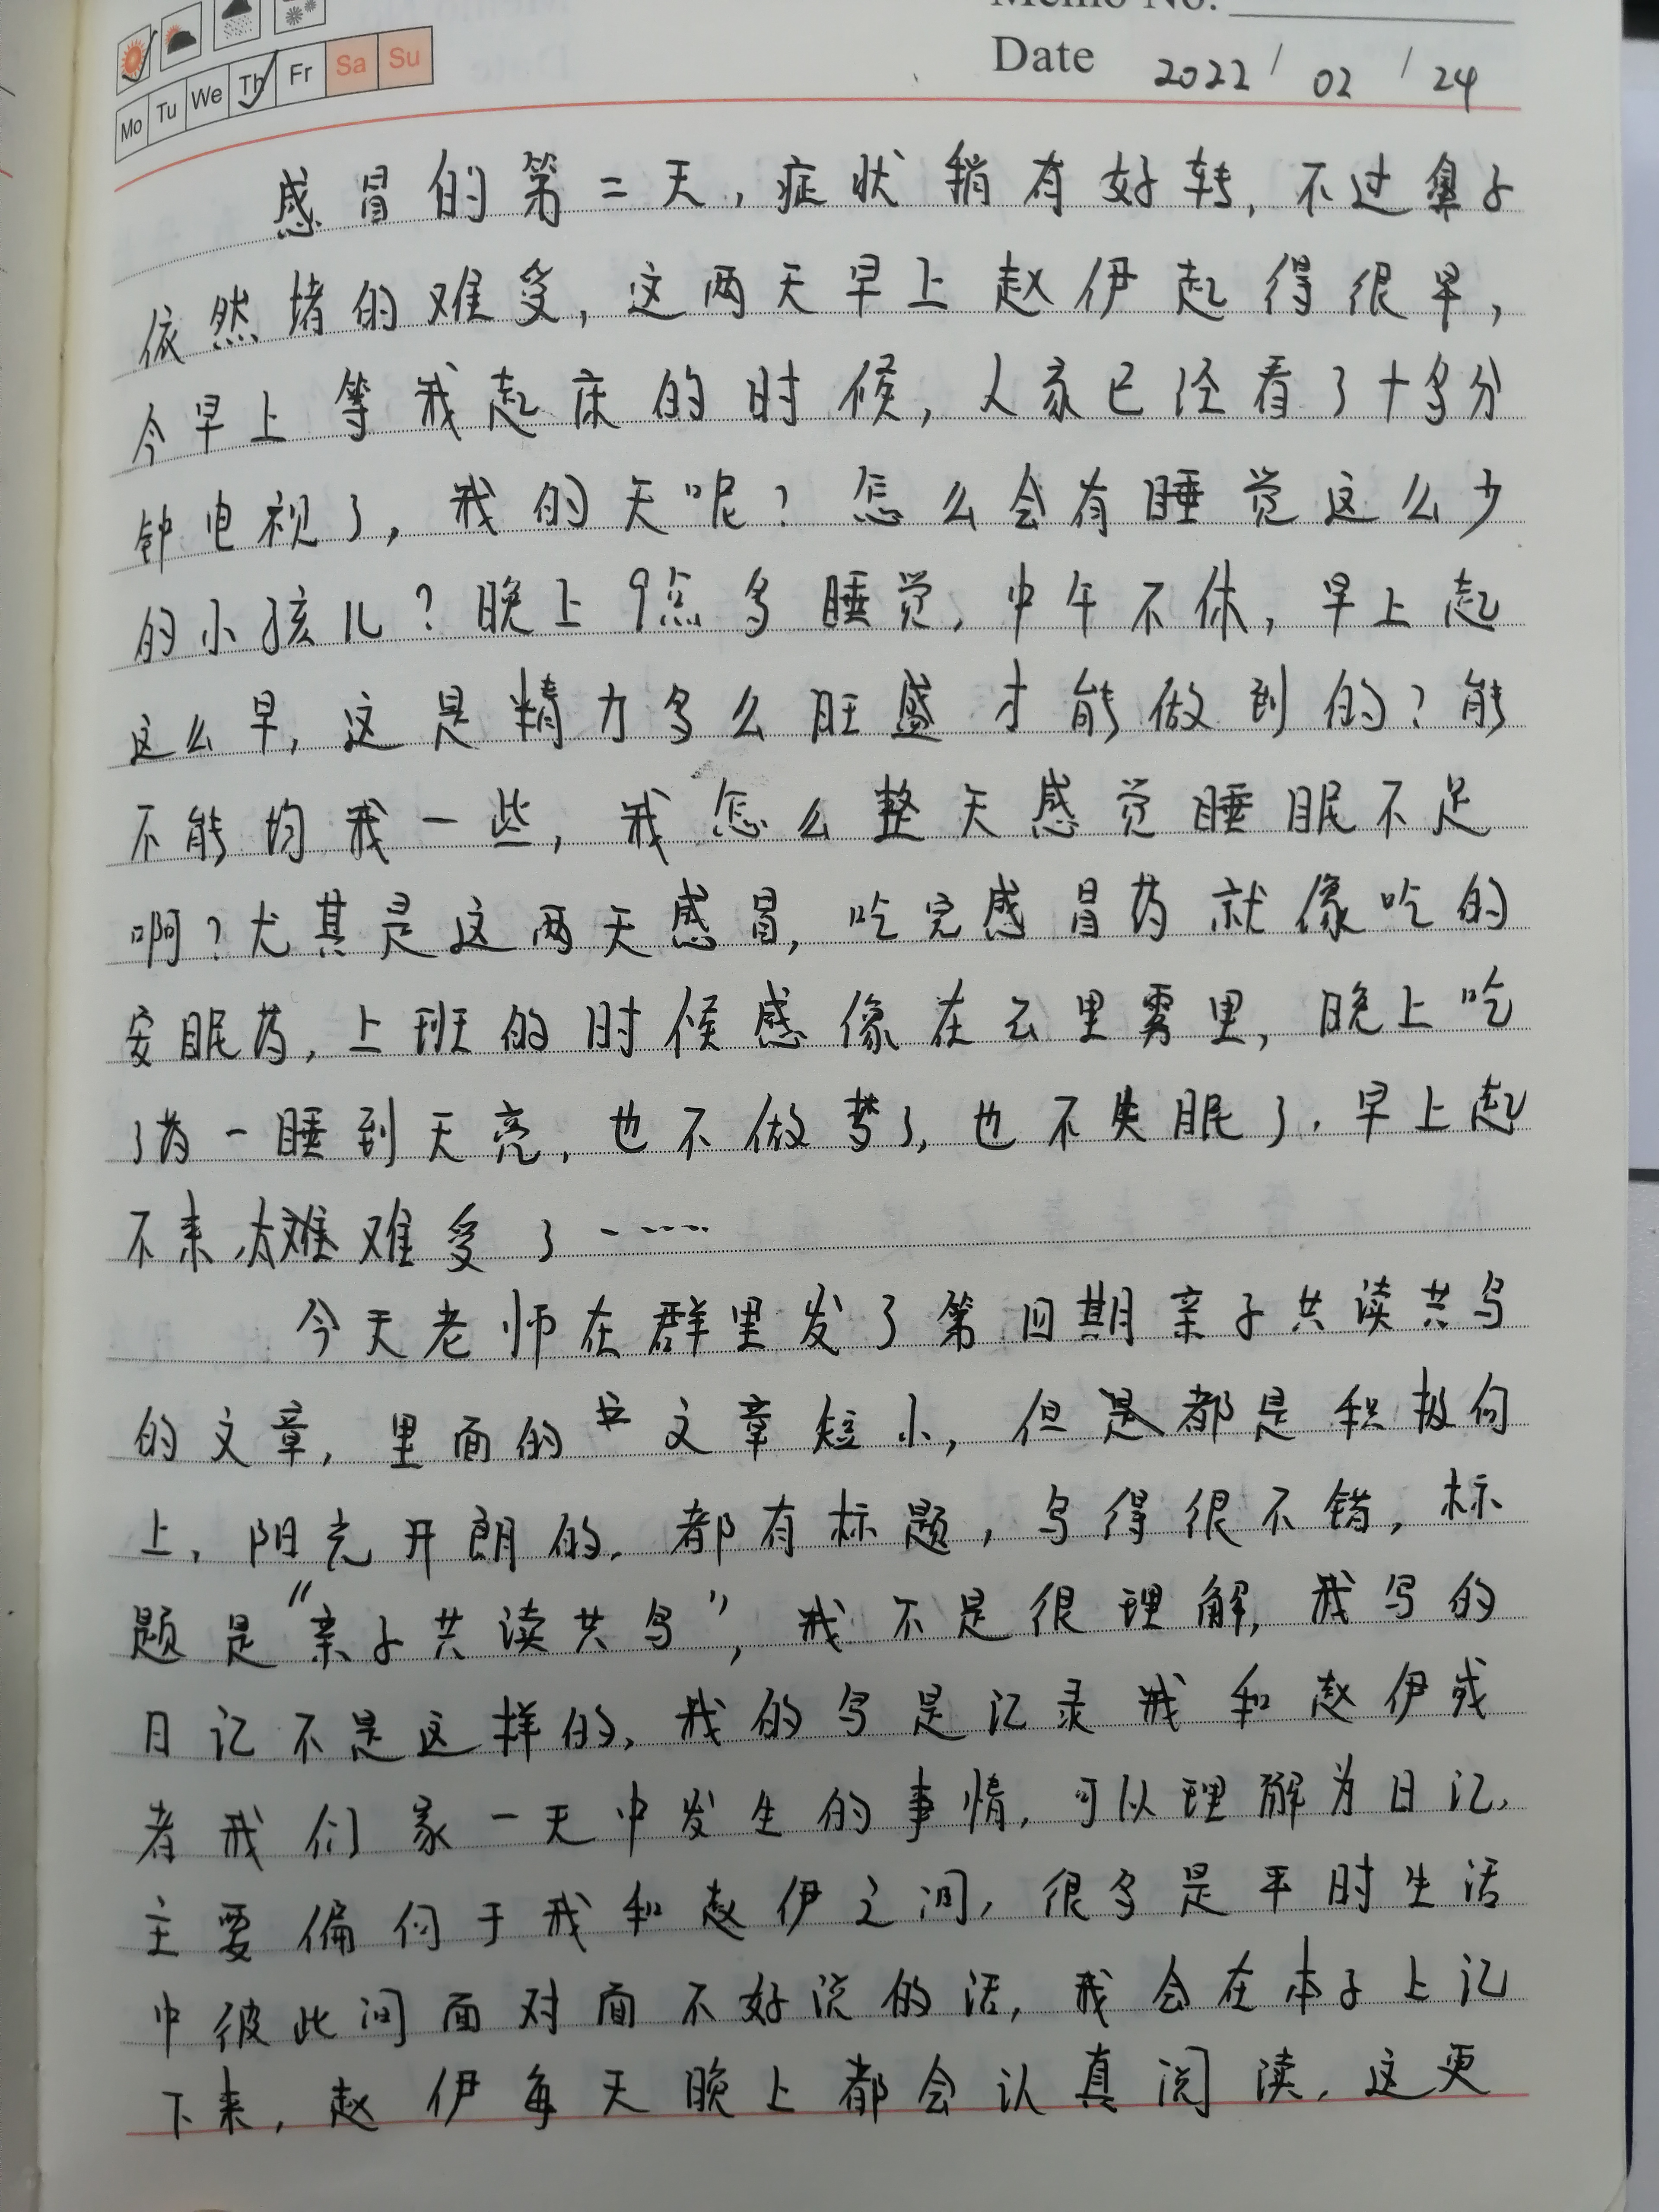 Memo No.
Date 2022 / 02 / 24
Mo Tu We Th Fr Sa Su
感冒的第二天，症状稍有好转，不过鼻子
依然堵的难受，这两天早上赵伊起得很早，
今早上等我起床的时候，人家已经看了十多分
钟电视了，我的天呢？怎么会有睡觉这么少
的小孩儿？晚上9点多睡觉，中午不休，早上起
这么早，这是精力多么旺盛才能做到的？能
不能均我一些，我怎么整天感觉睡眠不足
啊？尤其是这两天感冒，吃完感冒药就像吃的
安眠药，上班的时候感像在云里雾里，晚上吃
了药一睡到天亮，也不做梦了，也不失眠了，早上起
不来，太难难受了……
今天老师在群里发了第四期亲子共读共写
的文章，里面的文章短小，但是都是积极向
上，阳光开朗的，都有标题，写得很不错，标
题是“亲子共读共写”，我不是很理解，我写的
日记不是这样的，我的写是记录我和赵伊或
者我们家一天中发生的事情，可以理解为日记，
主要偏向于我和赵伊之间，很多是平时生活
中彼此间面对面不好说的话，我会在本子上记
下来，赵伊每天晚上都会认真阅读，这更